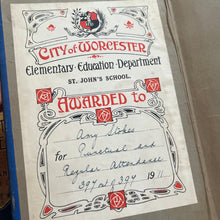 CITY OF WORCESTER
Elementary Education Department
ST. JOHN'S SCHOOL.
AWARDED to
Amy Stokes
for Punctual and
Regular Attendance
397 out of 397 1911